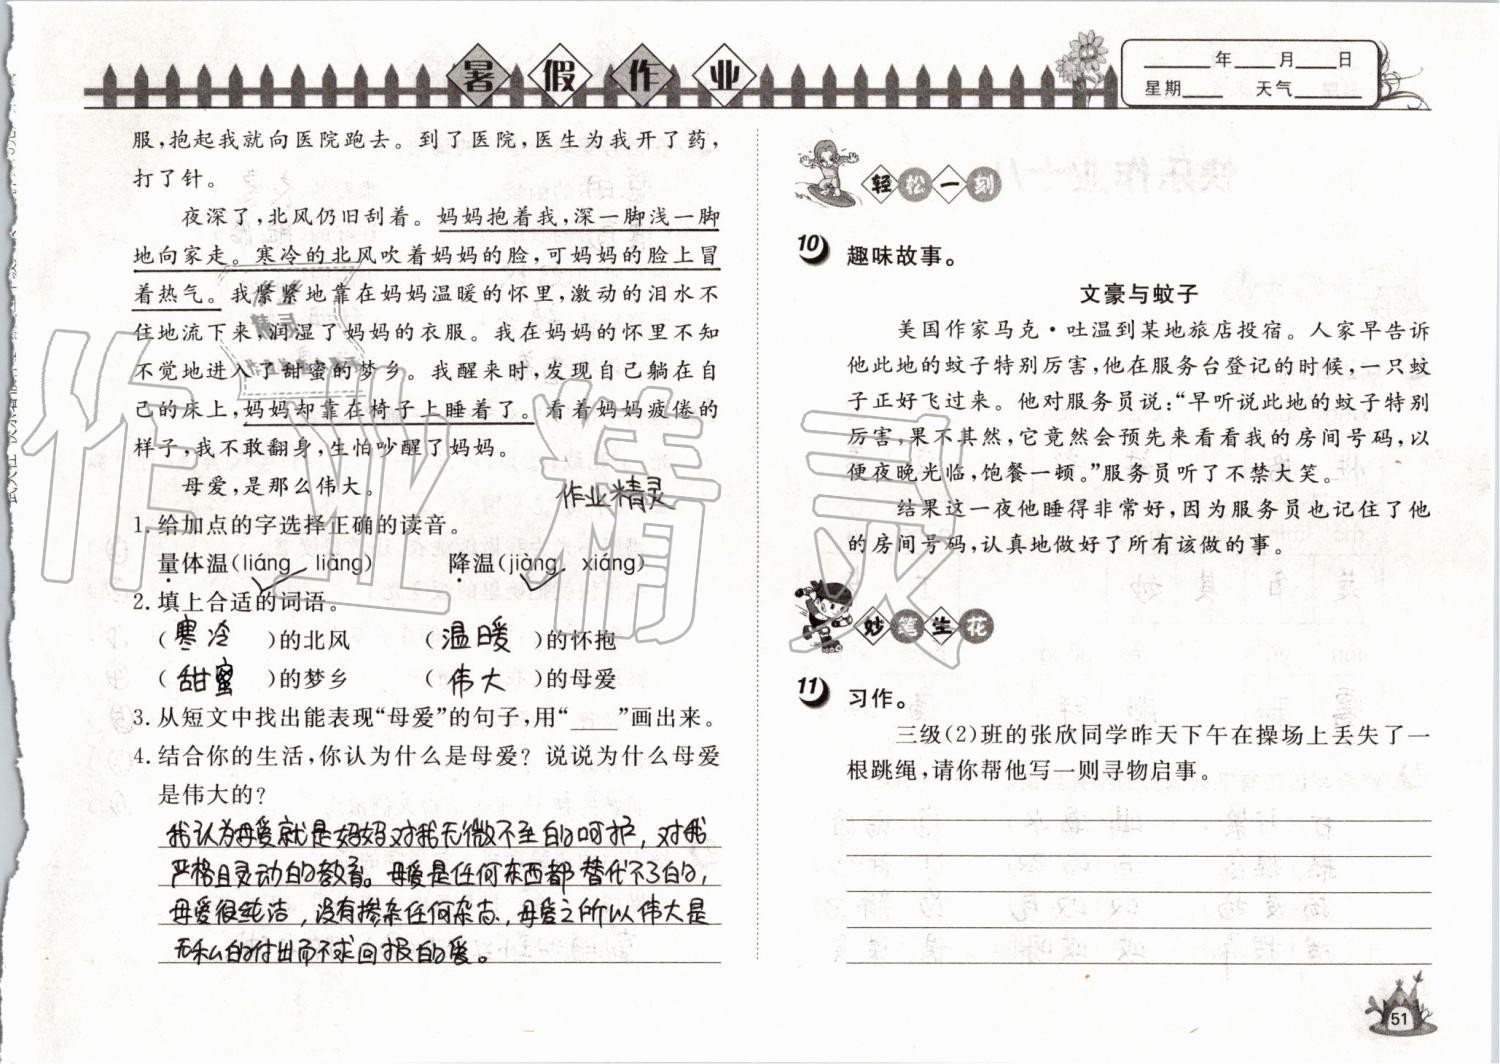 暑假作业
____年____月____日
星期____ 天气______
服,抱起我就向医院跑去。到了医院,医生为我开了药,
打了针。
夜深了,北风仍旧刮着。妈妈抱着我,深一脚浅一脚
地向家走。寒冷的北风吹着妈妈的脸,可妈妈的脸上冒
着热气。我紧紧地靠在妈妈温暖的怀里,激动的泪水不
住地流下来,润湿了妈妈的衣服。我在妈妈的怀里不知
不觉地进入了甜蜜的梦乡。我醒来时,发现自己躺在自
己的床上,妈妈却靠在椅子上睡着了。看着妈妈疲倦的
样子,我不敢翻身,生怕吵醒了妈妈。
母爱,是那么伟大。
作业精灵
1. 给加点的字选择正确的读音。
量体温(liáng liàng) 降温(jiàng xiáng)
2. 填上合适的词语。
(寒冷)的北风 (温暖)的怀抱
(甜蜜)的梦乡 (伟大)的母爱
3. 从短文中找出能表现“母爱”的句子,用“____”画出来。
4. 结合你的生活,你认为什么是母爱?说说为什么母爱
是伟大的?
我认为母爱就是妈妈对我无微不至的呵护,对我
严格且灵动的教育。母爱是任何东西都替代不了的,
母爱很纯洁,没有掺杂任何杂志,母爱之所以伟大是
无私的付出而不求回报的爱。
轻松一刻
10 趣味故事。
文豪与蚊子
美国作家马克·吐温到某地旅店投宿。人家早告诉
他此地的蚊子特别厉害,他在服务台登记的时候,一只蚊
子正好飞过来。他对服务员说:“早听说此地的蚊子特别
厉害,果不其然,它竟然会预先来看看我的房间号码,以
便夜晚光临,饱餐一顿。”服务员听了不禁大笑。
结果这一夜他睡得非常好,因为服务员也记住了他
的房间号码,认真地做好了所有该做的事。
妙笔生花
11 习作。
三级(2)班的张欣同学昨天下午在操场上丢失了一
根跳绳,请你帮他写一则寻物启事。
51
作业精灵